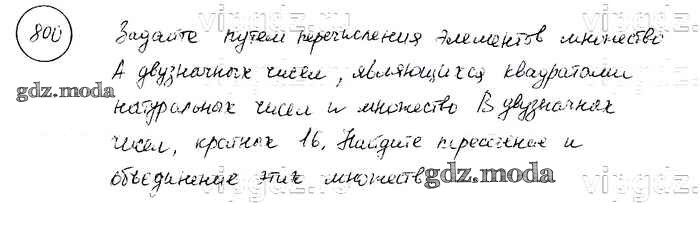 800 Задайте путем перечисления элементов множество
А двузначных чисел, являющихся квадратами
натуральных чисел и множество В двузначных
чисел, кратных 16. Найдите пересечение и
объединение этих множеств
vipgdz.ru
gdz.moda
vipgdz.ru
gdz.moda
vipgdz.ru